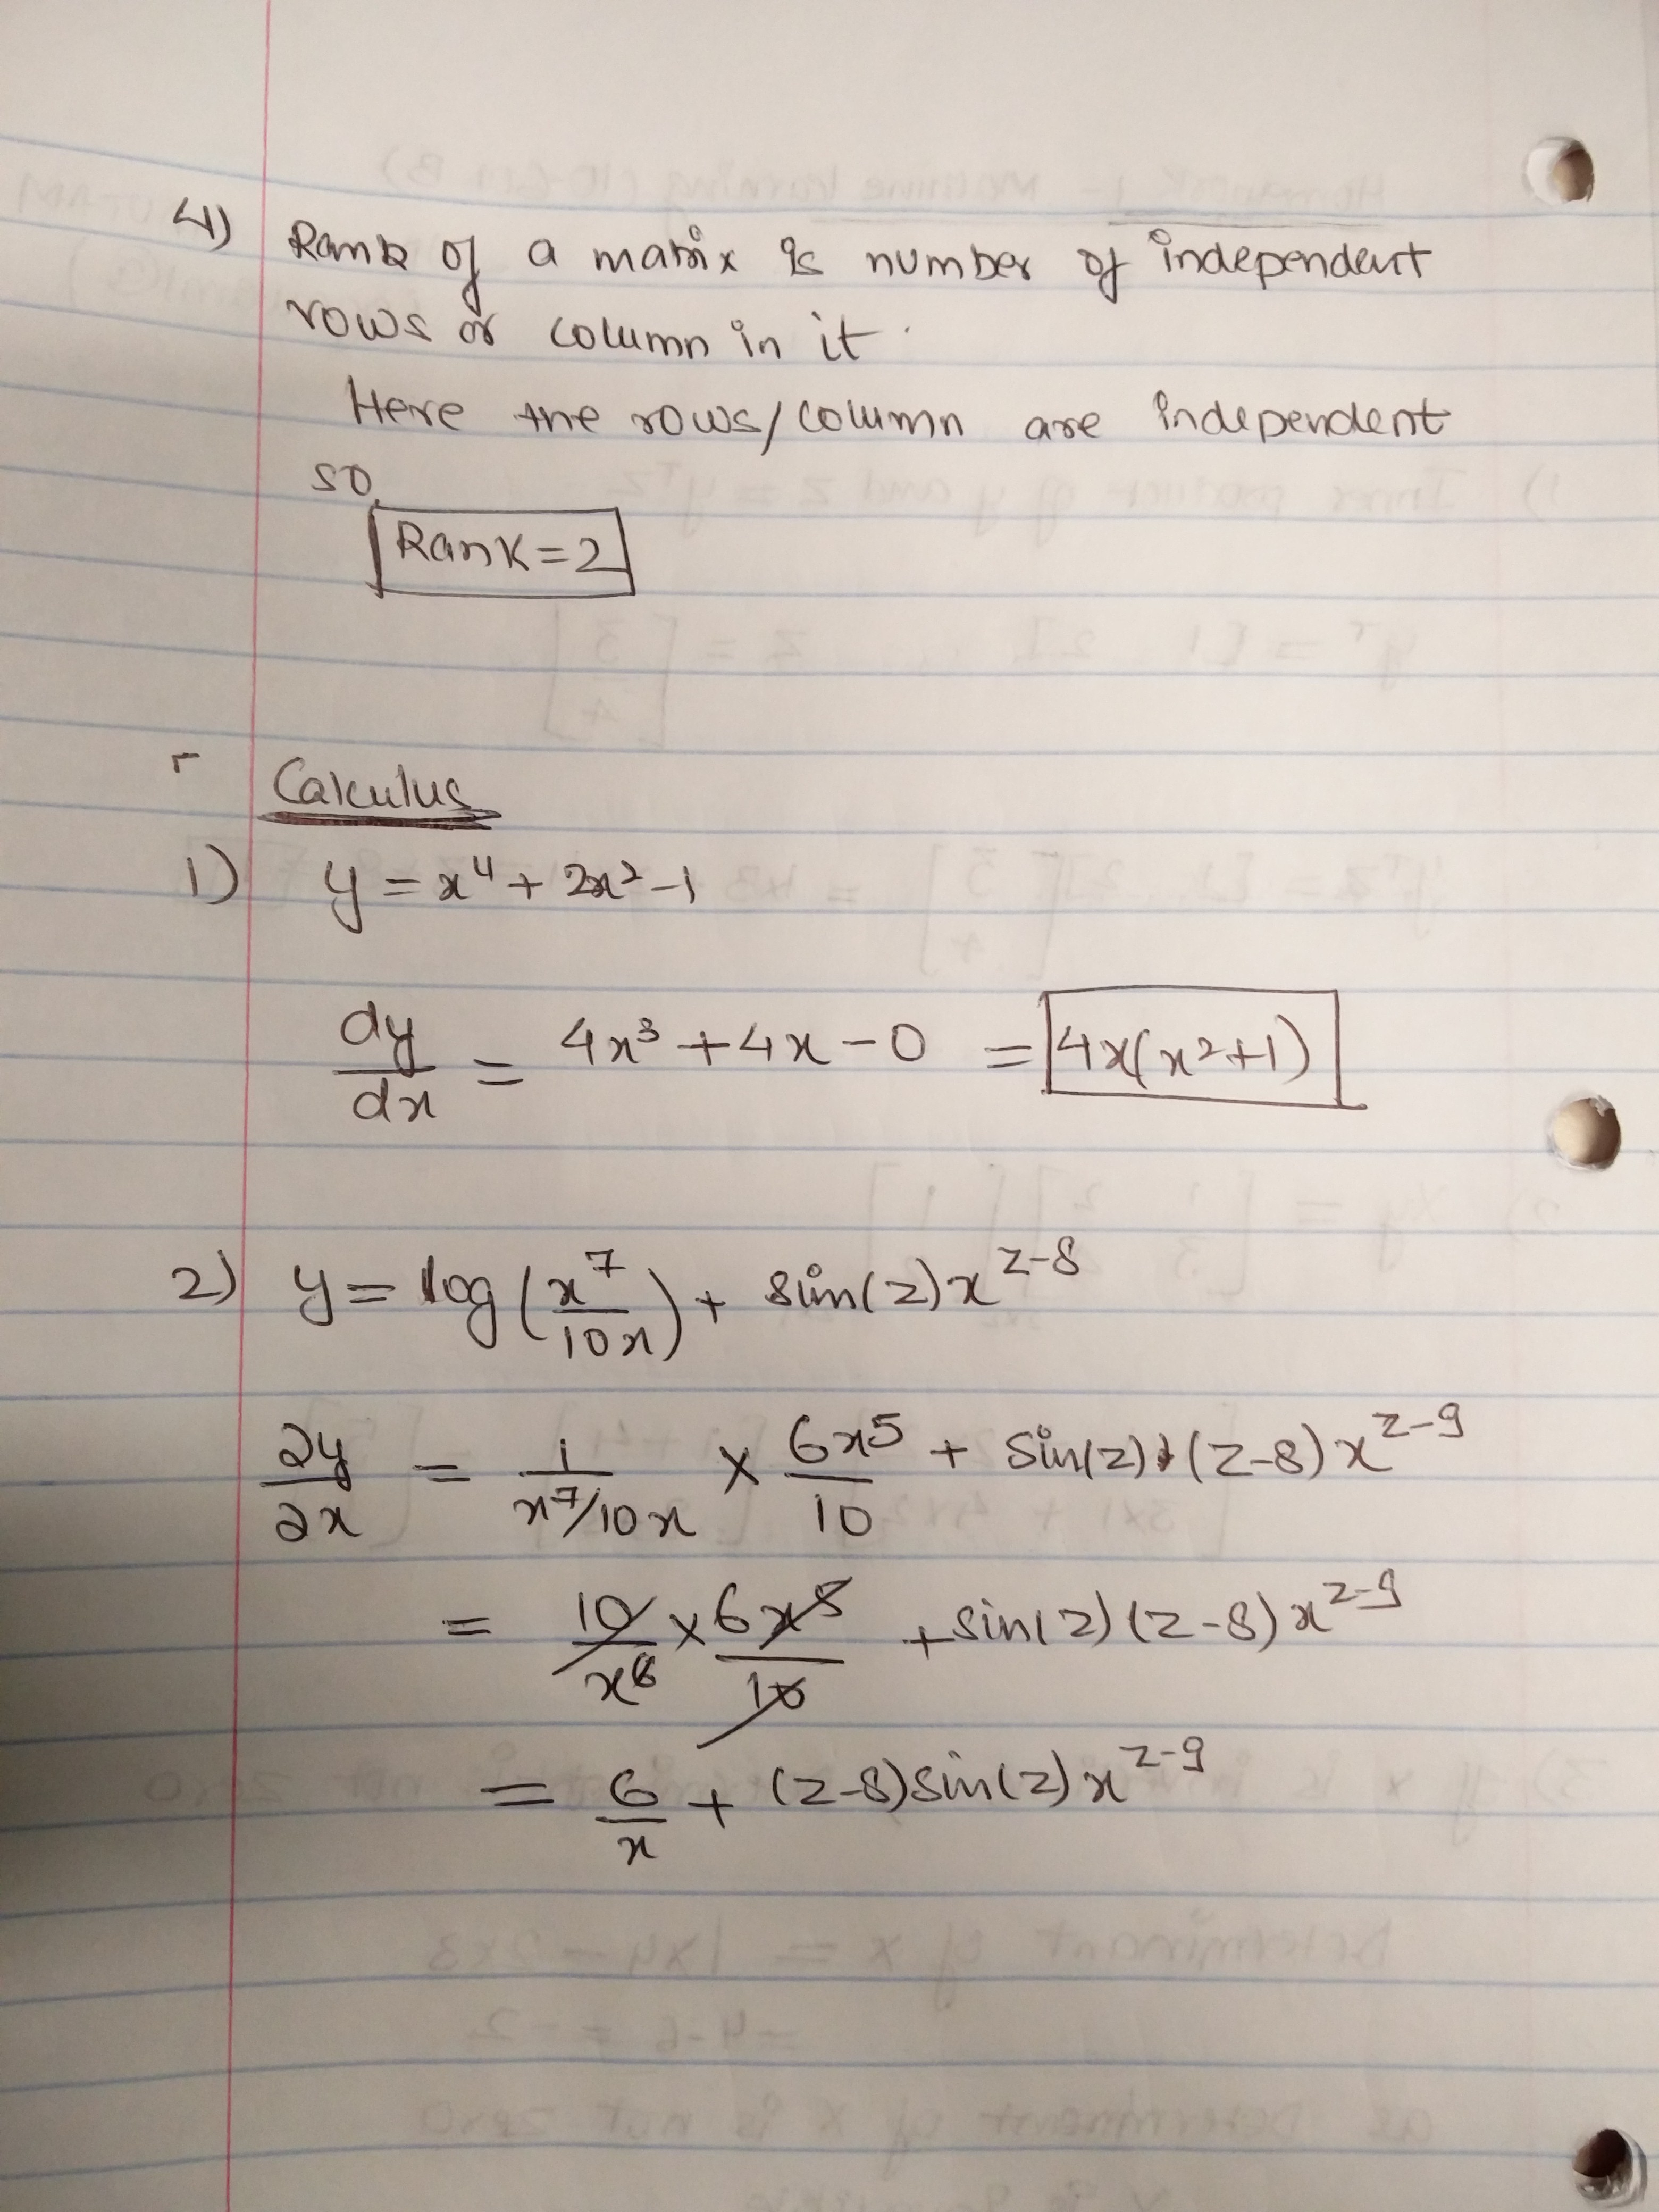 4) Rank of a matrix is number of independent
rows or column in it.
Here the rows/column are independent
so,
Rank=2
Calculus
1) y = x⁴ + 2x² - 1
dy/dx = 4x³ + 4x - 0 = 4x(x²+1)
2) y = log(x⁷/10x) + sin(z)x^(z-8)
∂y/∂x = 1/(x⁷/10x) × 6x⁵/10 + sin(z)(z-8)x^(z-9)
= 10/x⁶ × 6x⁵/10 + sin(z)(z-8)x^(z-9)
= 6/x + (z-8)sin(z)x^(z-9)